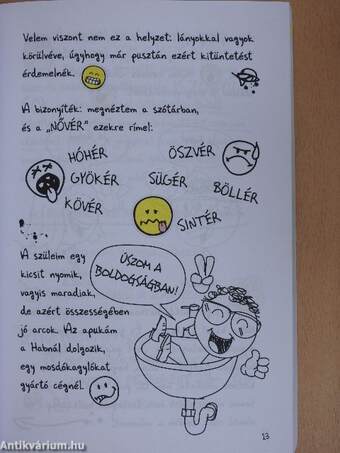 Velem viszont nem ez a helyzet: lányokkal vagyok
körülvéve, úgyhogy már pusztán ezért kitüntetést
érdemelnék.
A bizonyíték: megnéztem a szótárban,
és a „NŐVÉR” ezekre rímel:
HÓHÉR
ÖSZVÉR
GYÖKÉR
SÜGÉR
BÖLLÉR
KÖVÉR
SINTÉR
A szüleim egy
kicsit nyomik,
vagyis maradiak,
de azért összességében
jó arcok. Az apukám
a Habnál dolgozik,
egy mosdókagylókat
gyártó cégnél.
ÚSZOM A
BOLDOGSÁGBAN!
13
Antikvárium.hu